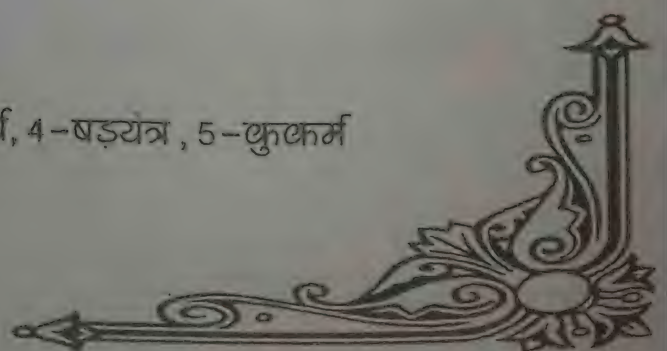 , 4-षड़यंत्र, 5-कुकर्म